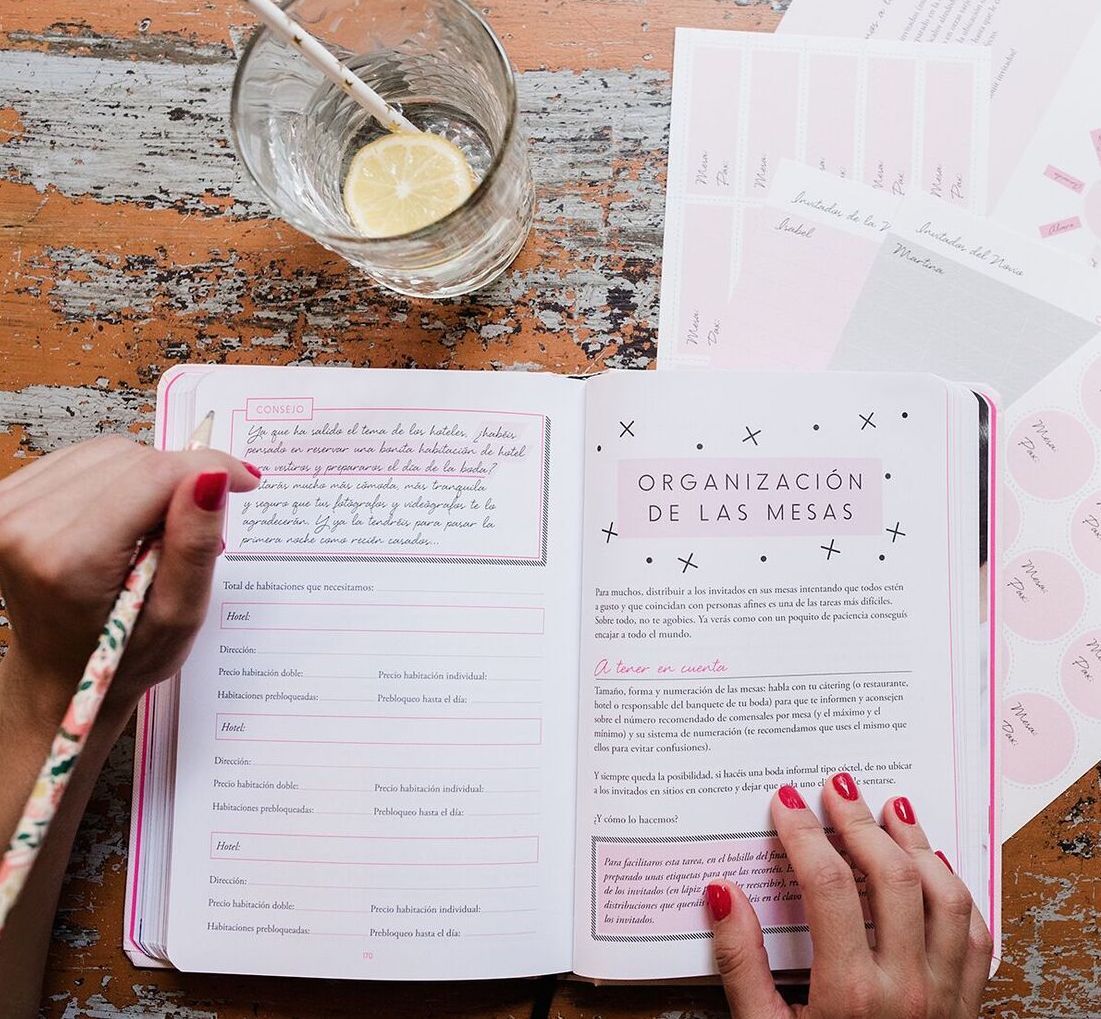 Mesa:
Pax:
Mesa:
Mesa:
Mesa:
Pax:
Mesa:
Pax:
Invitados de la
Isabel
Invitados del Novio
Martina
Mesa:
Pax:
Mesa:
Pax:
Mesa:
Pax:
Mesa:
Pax:
CONSEJO
Ya que ha salido el tema de los hoteles, ¿habéis
pensado en reservar una bonita habitación de hotel
vestiros y prepararos el día de la boda?
mucho más cómoda, más tranquila
y seguro que tus fotógrafos y videógrafos te lo
agradecerán. Y ya la tendréis para pasar la
primera noche como recién casados...
Total de habitaciones que necesitamos:
Hotel:
Dirección:
Precio habitación doble: Precio habitación individual:
Habitaciones prebloqueadas: Prebloqueo hasta el día:
Hotel:
Dirección:
Precio habitación doble: Precio habitación individual:
Habitaciones prebloqueadas: Prebloqueo hasta el día:
Hotel:
Dirección:
Precio habitación doble: Precio habitación individual:
Habitaciones prebloqueadas: Prebloqueo hasta el día:
170
ORGANIZACIÓN
DE LAS MESAS
Para muchos, distribuir a los invitados en sus mesas intentando que todos estén
a gusto y que coincidan con personas afines es una de las tareas más difíciles.
Sobre todo, no te agobies. Ya verás como con un poquito de paciencia conseguís
encajar a todo el mundo.
A tener en cuenta
Tamaño, forma y numeración de las mesas: habla con tu cátering (o restaurante,
hotel o responsable del banquete de tu boda) para que te informen y aconsejen
sobre el número recomendado de comensales por mesa (y el máximo y el
mínimo) y su sistema de numeración (te recomendamos que uses el mismo que
ellos para evitar confusiones).
Y siempre queda la posibilidad, si hacéis una boda informal tipo cóctel, de no ubicar
a los invitados en sitios en concreto y dejar que cada uno sentarse.
¿Y cómo lo hacemos?
Para facilitaros esta tarea, en el bolsillo del
preparado unas etiquetas para que las recortéis.
de los invitados (en lápiz reescribir),
distribuciones que queráis en el
los invitados.